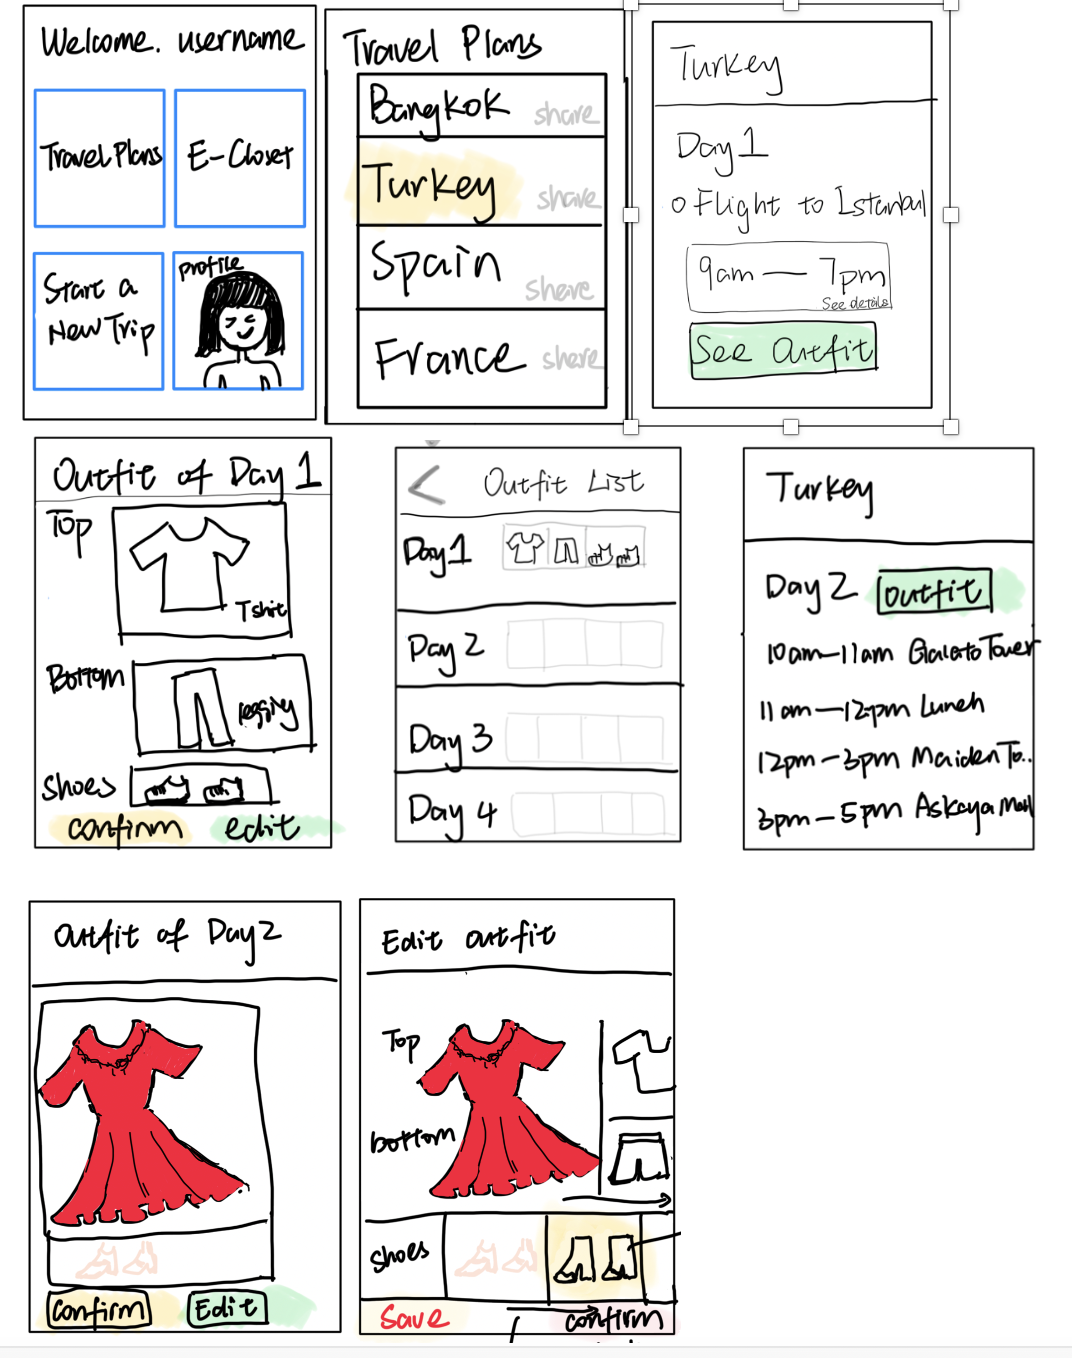 Welcome. username
Travel Plans
E-Closet
Start a
New Trip
profile
Travel Plans
Bangkok share
Turkey share
Spain share
France share
Turkey
Day 1
o Flight to Istanbul
9am — 7pm
See details
See Outfit
Outfit of Day 1
Top
Tshirt
Bottom
legging
Shoes
confirm edit
< Outfit List
Day 1
Day 2
Day 3
Day 4
Turkey
Day 2 outfit
10am—11am Galata Tower
11am—12pm Lunch
12pm—3pm Maiden To..
3pm—5pm Askaya Mall
Outfit of Day 2
Confirm Edit
Edit outfit
Top
bottom
shoes
Save confirm